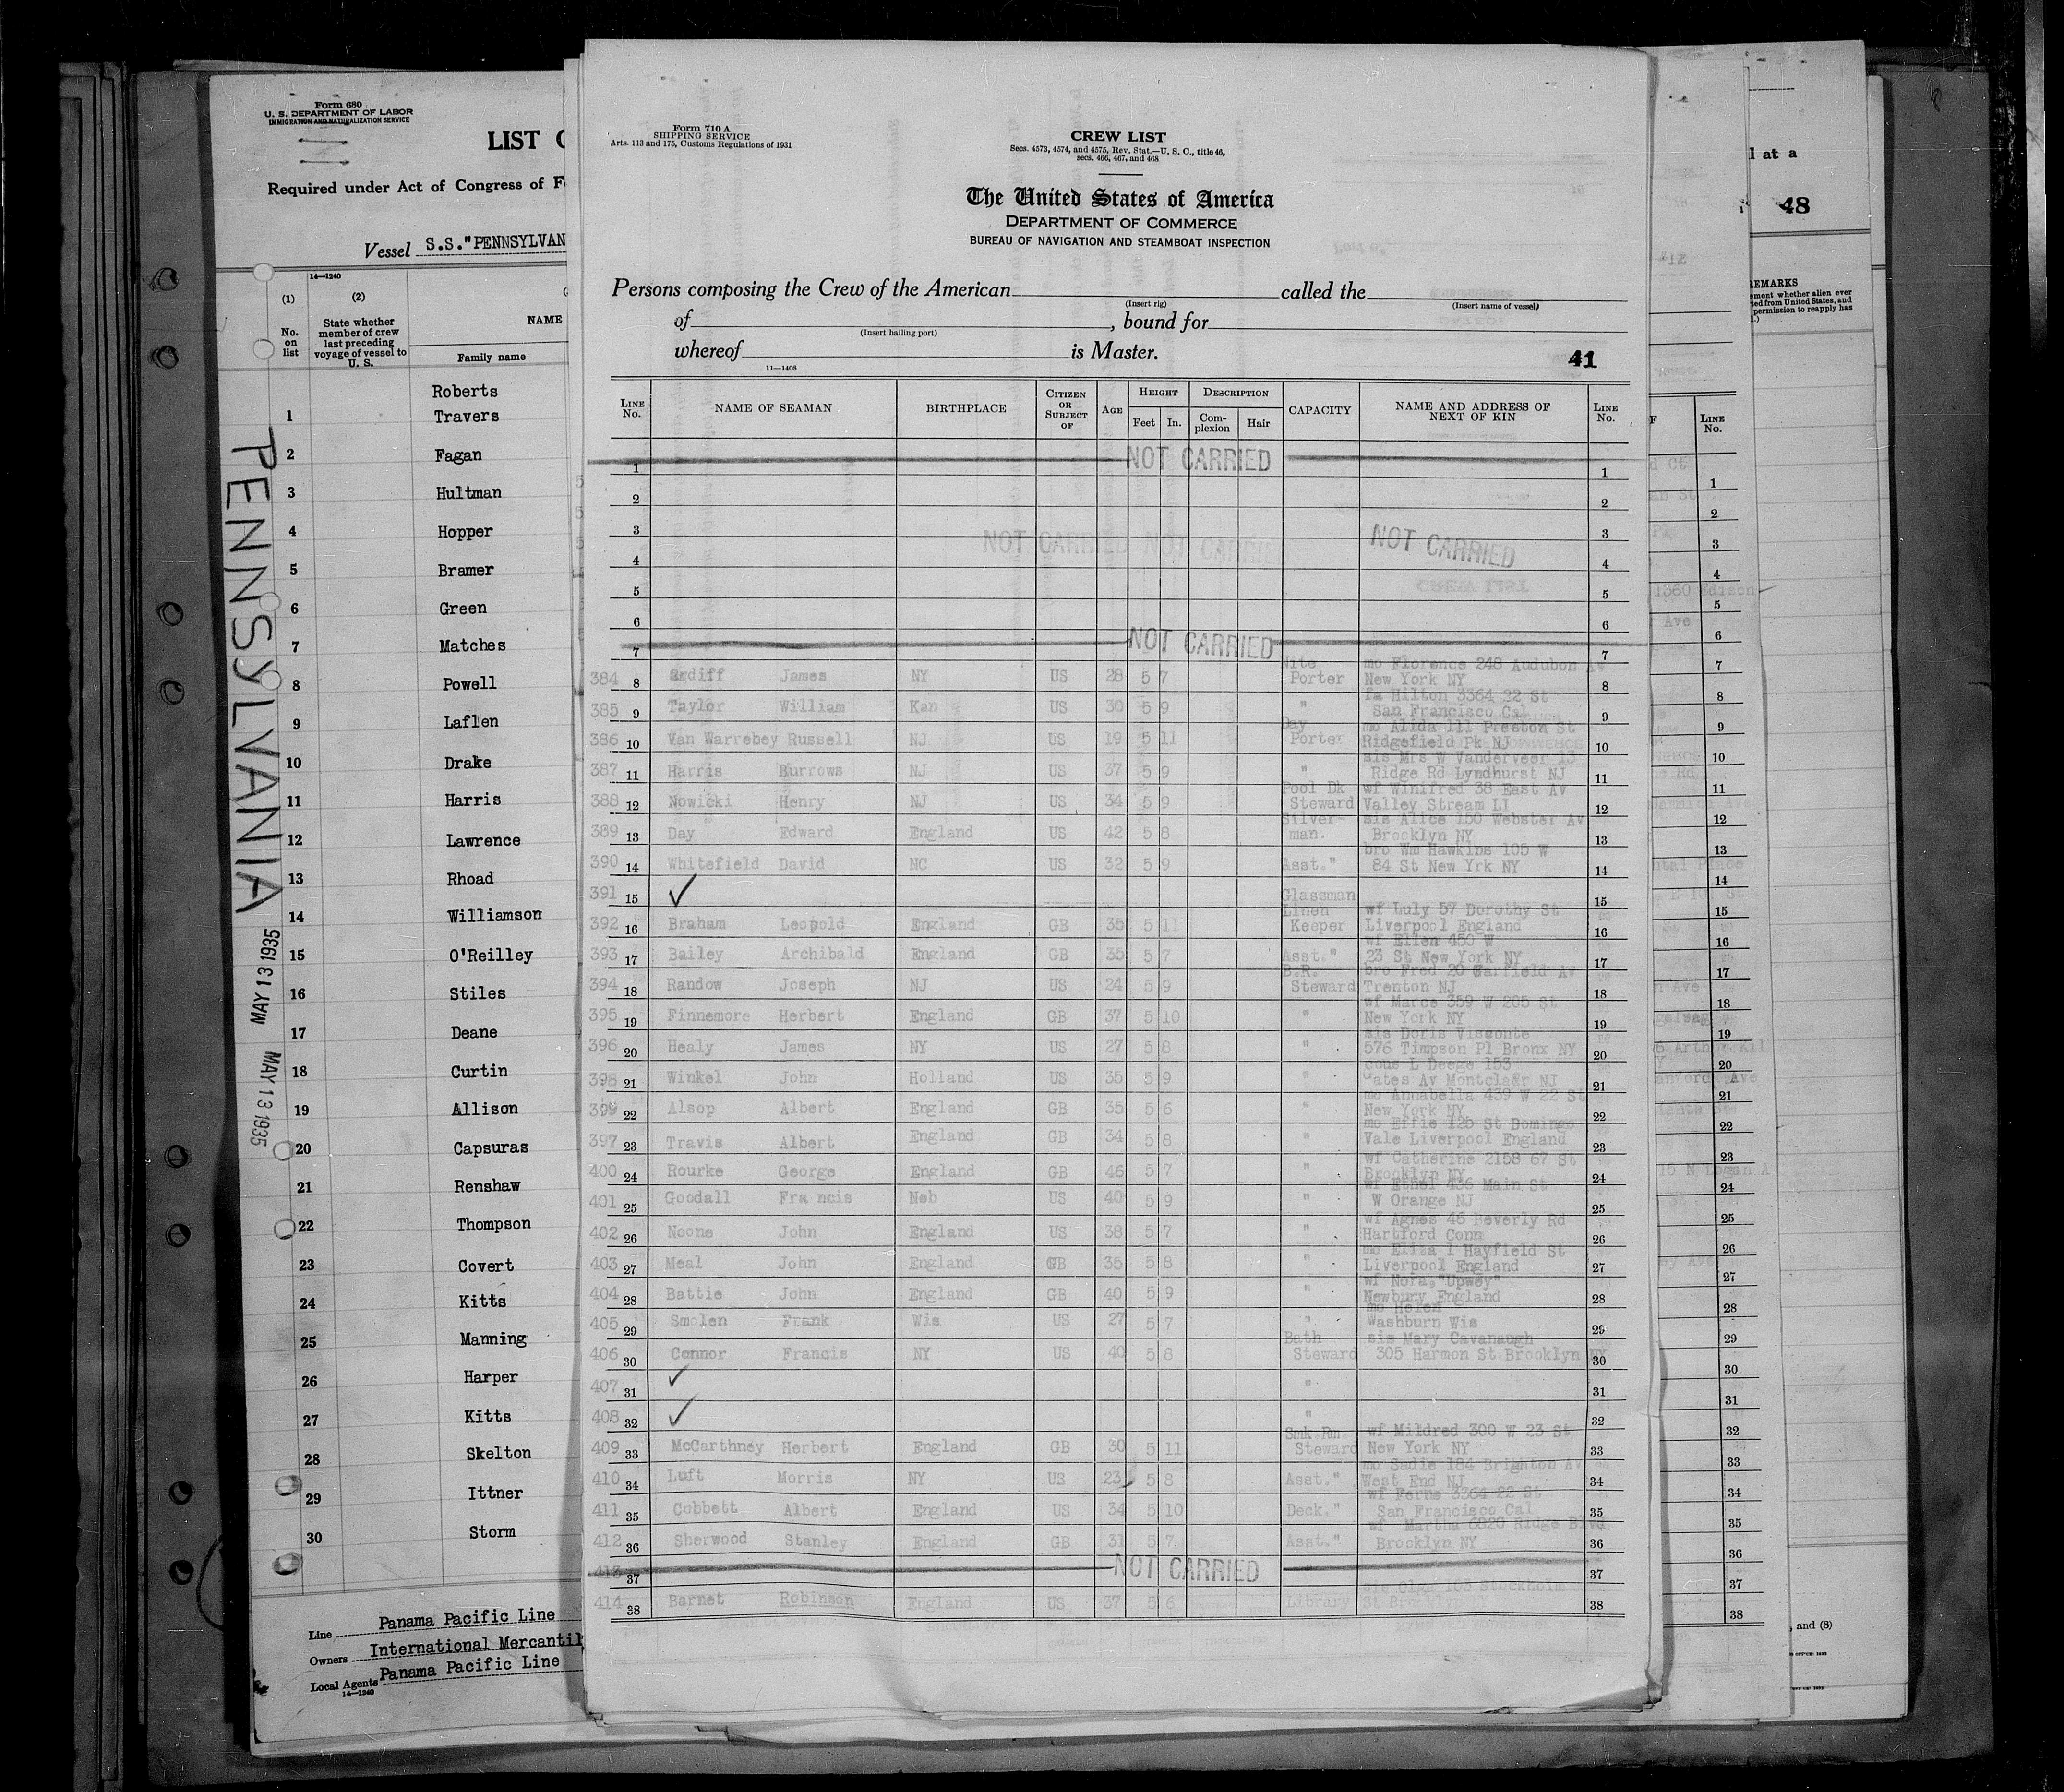 Form 680
U. S. DEPARTMENT OF LABOR
IMMIGRATION AND NATURALIZATION SERVICE
LIST
Required under Act of Congress of
Vessel S.S."PENNSYLVAN
14—1240
(1) (2)
No. on list
State whether member of crew last preceding voyage of vessel to U. S.
NAME
Family name
Roberts
1 Travers
2 Fagan
3 Hultman
4 Hopper
5 Bramer
6 Green
7 Matches
8 Powell
9 Laflen
10 Drake
11 Harris
12 Lawrence
13 Rhoad
14 Williamson
15 O'Reilley
16 Stiles
17 Deane
18 Curtin
19 Allison
20 Capsuras
21 Renshaw
22 Thompson
23 Covert
24 Kitts
25 Manning
26 Harper
27 Kitts
28 Skelton
29 Ittner
30 Storm
PENNSYLVANIA
MAY 13 1935
MAY 13 1935
Line Panama Pacific Line
Owners International Mercantil
Local Agents Panama Pacific Line
14—1240
Form 710 A
SHIPPING SERVICE
Arts. 113 and 175, Customs Regulations of 1931
CREW LIST
Secs. 4573, 4574, and 4575, Rev. Stat.—U. S. C., title 46,
secs. 466, 467, and 468
The United States of America
DEPARTMENT OF COMMERCE
BUREAU OF NAVIGATION AND STEAMBOAT INSPECTION
Persons composing the Crew of the American called the
(Insert rig) (Insert name of vessel)
of , bound for
(Insert hailing port)
whereof is Master.
11—1408
41
LINE No. NAME OF SEAMAN BIRTHPLACE CITIZEN OR SUBJECT OF AGE HEIGHT Feet In. DESCRIPTION Complexion Hair CAPACITY NAME AND ADDRESS OF NEXT OF KIN LINE No.
NOT CARRIED
1 1
2 2
3 3
NOT CARRIED NOT CARRIED NOT CARRIED
4 4
5 5
6 6
NOT CARRIED
7 7
384 8 James NY US 28 5 7 Nite Porter mo Florence 248 Audubon Av New York NY 8
385 9 Taylor William Kan US 30 5 9 " fa Hilton 3364 22 St San Francisco Cal 9
386 10 Van Warrebey Russell NJ US 19 5 11 Day Porter mo Alida 111 Preston St Ridgefield Pk NJ 10
387 11 Harris Burrows NJ US 37 5 9 " sis Mrs W Vanderveer 13 Ridge Rd Lyndhurst NJ 11
388 12 Nowicki Henry NJ US 34 5 9 Pool Dk Steward wf Winifred 38 East Av Valley Stream LI 12
389 13 Day Edward England US 42 5 8 Silver-man. sis Alice 150 Webster Av Brooklyn NY 13
390 14 Whitefield David NC US 32 5 9 Asst." bro Wm Hawkins 105 W 84 St New Yrk NY 14
391 15 ✓ Glassman 15
392 16 Braham Leopold England GB 35 5 11 Linen Keeper wf Luly 57 Dorothy St Liverpool England 16
393 17 Bailey Archibald England GB 35 5 7 Asst." wf Ellen 450 W 23 St New York NY 17
394 18 Randow Joseph NJ US 24 5 9 B.R. Steward bro Fred 20 Garfield Av Trenton NJ 18
395 19 Finnemore Herbert England GB 37 5 10 " wf Marce 359 W 205 St New York NY 19
396 20 Healy James NY US 27 5 8 " sis Doris Visconte 576 Timpson Pl Bronx NY 20
398 21 Winkel John Holland US 35 5 9 " cous L Deege 153 Gates Av Montclaer NJ 21
399 22 Alsop Albert England GB 35 5 6 " mo Annabella 439 W 22 St New York NY 22
397 23 Travis Albert England GB 34 5 8 " mo Effie 125 St Domingo Vale Liverpool England 23
400 24 Rourke George England GB 46 5 7 " wf Catherine 2158 67 St Brooklyn NY 24
401 25 Goodall Fra ncis Neb US 40 5 9 " wf Ethel 436 Main St W Orange NJ 25
402 26 Noone John England US 38 5 7 " wf Agnes 46 Beverly Rd Hartford Conn 26
403 27 Meal John England GB 35 5 8 " mo Eliza 1 Hayfield St Liverpool England 27
404 28 Battie John England GB 40 5 9 " wf Nora "Upwey" Newbury England 28
405 29 Smolen Frank Wis US 27 5 7 " mo Helen Washburn Wis 29
406 30 Connor Francis NY US 40 5 8 Bath Steward sis Mary Cavanaugh 305 Harmon St Brooklyn NY 30
407 31 ✓ " 31
408 32 ✓ " 32
409 33 McCarthney Herbert England GB 30 5 11 Smk Rm Steward wf Mildred 300 W 23 St New York NY 33
410 34 Luft Morris NY US 23 5 8 Asst." mo Sadie 184 Brighton Av West End NJ 34
411 35 Cobbett Albert England US 34 5 10 Deck." wf Ferne 3364 22 St San Francisco Cal 35
412 36 Sherwood Stanley England GB 31 5 7 Asst." wf Martha 6820 Ridge Blvd Brooklyn NY 36
413 37 NOT CARRIED 37
414 38 Barnet Robinson England US 37 5 6 Library sis Olga 163 Stockholm St Brooklyn 38
l at a
48
REMARKS
LINE No.
1
2
3
4
1360 Edison
5
Ave
6
7
8
9
10
11
12
13
14
15
16
17
18
19
20
21
22
23
24
25
26
27
28
29
30
31
32
33
34
35
36
37
38
, and (8)